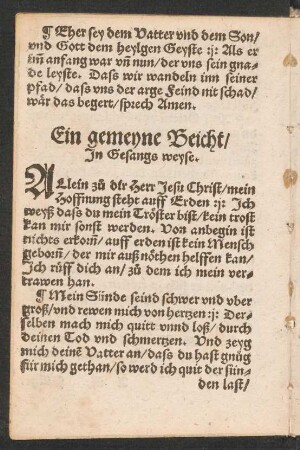 ¶ Eher sey dem Vatter vnd dem Son/
vnd Gott dem heylgen Geyste :ǁ: Als er
im̃ anfang war vñ nun/ der vns sein gna-
de leyste. Dass wir wandeln inn seiner
pfad/ dass vns der arge Feind nit schad/
wär das begert/ sprech Amen.
Ein gemeyne Beicht/
In Gesangs weyse.
ALlein zů dir Herr Jesu Christ/ mein
Hoffnung steht auff Erden :ǁ: Ich
weyß dass du mein Tröster bist/ kein trost
kan mir sonst werden. Von anbegin ist
nichts erkorñ/ auff erden ist kein Mensch
geborñ/ der mir auß nöthen helffen kan/
Ich růff dich an/ zů dem ich mein ver-
trawen han.
¶ Mein Sünde seind schwer vnd vber
groß/ vnd rewen mich von hertzen :ǁ: Der-
selben mach mich quitt vnnd loß/ durch
deinen Tod vnd schmertzen. Vnd zeyg
mich deinẽ Vatter an/ dass du hast gnůg
für mich gethan/ so werd ich quit der sün-
den last/